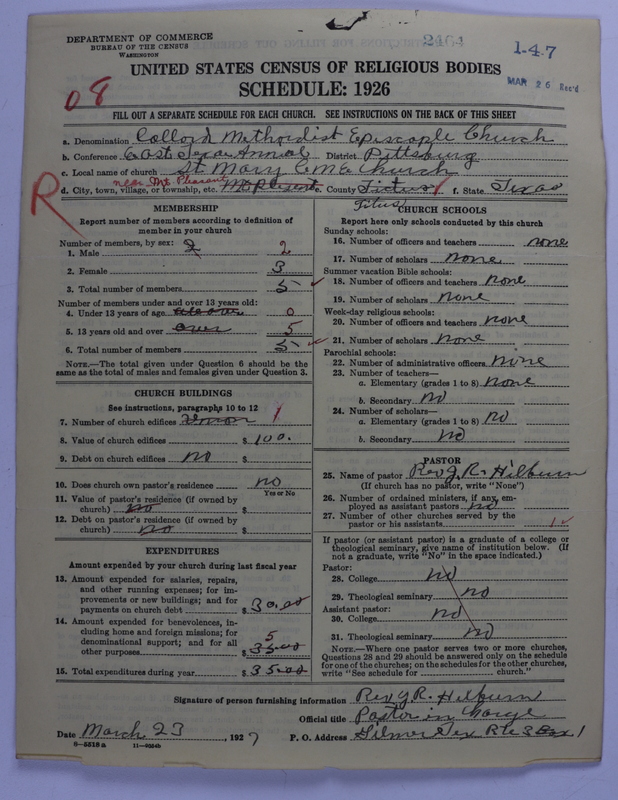 DEPARTMENT OF COMMERCE
BUREAU OF THE CENSUS
WASHINGTON
2464
1-4-7
MAR 26 Rec'd
UNITED STATES CENSUS OF RELIGIOUS BODIES
SCHEDULE: 1926
08
FILL OUT A SEPARATE SCHEDULE FOR EACH CHURCH. SEE INSTRUCTIONS ON THE BACK OF THIS SHEET
a. Denomination Collord Methodist Episcople Church
b. Conference East Texas Annual District Pittsburg
c. Local name of church St. Mary C M E Church
near Mt Pleasant
d. City, town, village, or township, etc. Mt Pleasant e. County Titus f. State Texas
Titus
R
MEMBERSHIP
Report number of members according to definition of member in your church
Number of members, by sex: 2
1. Male 2
2. Female 3
3. Total number of members 5
Number of members under and over 13 years old:
4. Under 13 years of age 0
5. 13 years old and over over 5
6. Total number of members 5
NOTE.—The total given under Question 6 should be the same as the total of males and females given under Question 3.
CHURCH BUILDINGS
See instructions, paragraphs 10 to 12
7. Number of church edifices 1
8. Value of church edifices $ 100.
9. Debt on church edifices no $
10. Does church own pastor's residence no
Yes or No
11. Value of pastor's residence (if owned by church) no $
12. Debt on pastor's residence (if owned by church) no $
EXPENDITURES
Amount expended by your church during last fiscal year
13. Amount expended for salaries, repairs, and other running expenses; for improvements or new buildings; and for payments on church debt $ 30.00
14. Amount expended for benevolences, including home and foreign missions; for denominational support; and for all other purposes 5 $ 35.00
15. Total expenditures during year $ 35.00
CHURCH SCHOOLS
Report here only schools conducted by this church
Sunday schools:
16. Number of officers and teachers none
17. Number of scholars none
Summer vacation Bible schools:
18. Number of officers and teachers none
19. Number of scholars none
Week-day religious schools:
20. Number of officers and teachers none
21. Number of scholars none
Parochial schools:
22. Number of administrative officers none
23. Number of teachers—
a. Elementary (grades 1 to 8) none
b. Secondary no
24. Number of scholars—
a. Elementary (grades 1 to 8) no
b. Secondary no
PASTOR
25. Name of pastor Rev J. R. Hilburn
(If church has no pastor, write "None")
26. Number of ordained ministers, if any, employed as assistant pastors no
27. Number of other churches served by the pastor or his assistants 1
If pastor (or assistant pastor) is a graduate of a college or theological seminary, give name of institution below. (If not a graduate, write "No" in the space indicated.)
Pastor:
28. College no
29. Theological seminary no
Assistant pastor:
30. College no
31. Theological seminary no
NOTE.—Where one pastor serves two or more churches, Questions 28 and 29 should be answered only on the schedule for one of the churches; on the schedules for the other churches, write "See schedule for church."
Signature of person furnishing information Rev J R. Hilburn
Official title Pastor in Charge
Date March 23, 1927 P. O. Address Gilmer Tex Rte 3 Box 1
8—5518a 11—9054b